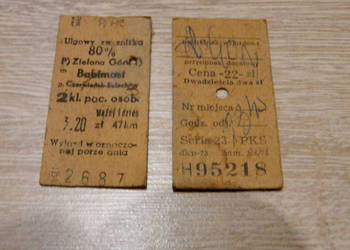 Ulgowy zwoźnitka
80%
Zielona Góra
m Babimost
2 kl. poc. osob.
Ważny 1 dzień
3.20 zł 47km
Wyjazd w oznaczo-
nej porze dnia
2687
Cena -22- zł
Dwadzieścia dwa zł
Nr miejsca
Godz. odj.
Seria 23 PKS
H95218